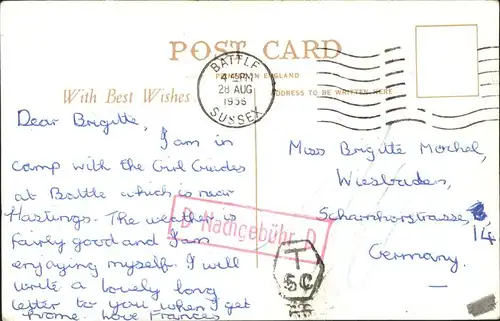 POST CARD
PRINTED IN ENGLAND
With Best Wishes
ADDRESS TO BE WRITTEN HERE
BATTLE
4 PM
28 AUG
1956
SUSSEX
Dear Brigitte,
I am in
camp with the Girl Guides
at Battle which is near
Hastings. The weather is
fairly good and I am
enjoying myself. I will
write a lovely long
letter to you when I get
home. Love Frances
Miss Brigitte Mochel,
Wiesbaden,
Scharnhorstrasse
14
Germany.
D Nachgebühr D
T
5C